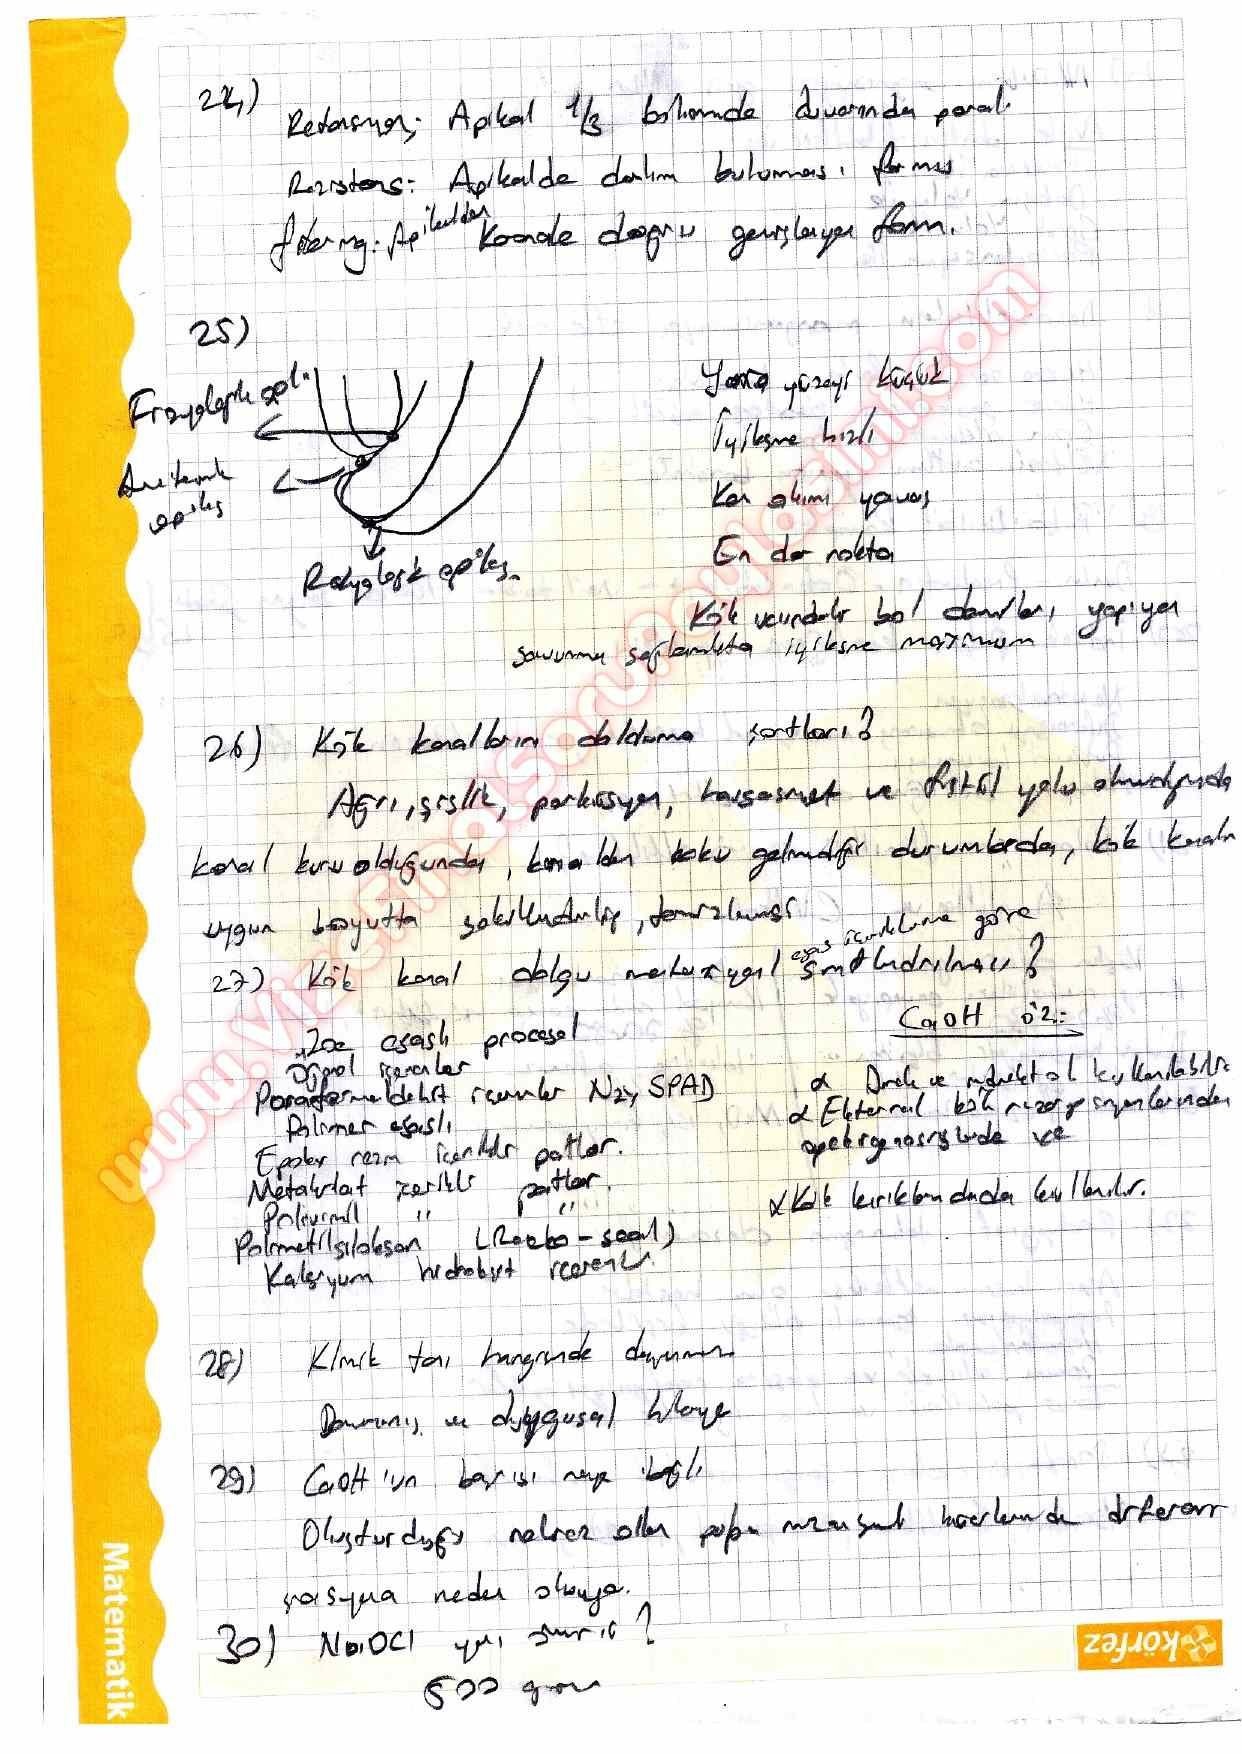 24)
Retansiyon: Apikal 1/3 bölümünde duvarında paral.
Rezistans: Apikalde darlım bulunması formu
Apikalden koronale doğru genişleyen form.
25)
Fizyolojik api.
Anatomik
apiks
Radyolojik apiks.
Yara yüzeyi küçük
İyileşme hızlı
Kan akımı yavaş
En dar nokta
Kök ucundaki bol damarları yapıyor
savunma sağlamakta iyileşme maximum
26) Kök kanalların doldurma şartları?
Ağrı, şişlik, perküsyon, hassasiyet ve fistül yolu olmadığında
kanal kuru olduğunda, kanaldan koku gelmediği durumlarda, kök kanalın
uygun boyutta şekillendirilip, temizlenmesi
27) Kök kanal dolgu materyal esas içeriklerine göre sınıflandırılması?
Zoe esaslı procosol
Öjenol içerenler
Paraformaldehit içerenler N2, SPAD
Polimer esaslı
Epoksy rezin içerikli patlar.
Metakrilat içerikli patlar.
Polivinil " "
Polimetilsiloksan (Roeko-seal)
Kalsiyum hidroksit içerenler.
CaOH öz:
α Direk ve indirekt ol kullanılabilir
α Eksternal kök rezorpsiyonlarından
apeksogenosisinde ve
α Kök kırıklarındada kullanılır.
28) Klinik tanı hangisinde
Davranış ve duygusal hikaye
29) CaOH'ın başarısı neye bağlı
Oluşturduğu nekroz olan pulpa hücrelerinde diferan
siasyona neden oluyor.
30) NaOCl
500 gram
www.VizeFinalSoruPaylasimi.com
Matematik
körfez